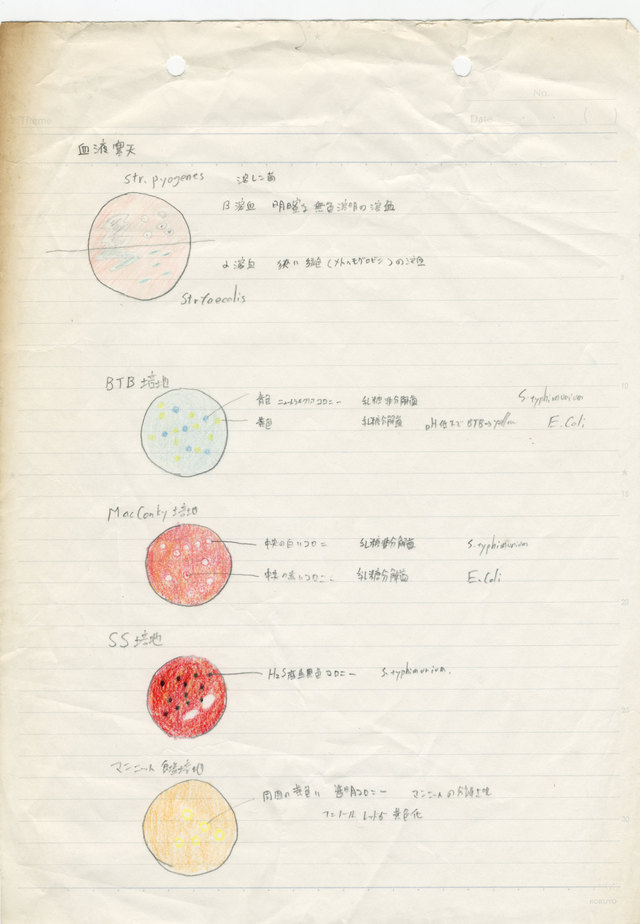 No.
Theme
Date
血液寒天
Str. pyogenes 溶レン菌
β溶血 明瞭な無色透明の溶血
α溶血 狭い緑色(メトヘモグロビン)の溶血
Str faecalis
BTB培地
青色 コロニー 乳糖非分解菌 S. typhimurium
黄色 乳糖分解菌 pH低下でBTBがyellow E. Coli
MacConky培地
中央の白いコロニー 乳糖非分解菌 S. typhimurium
中央の赤いコロニー 乳糖分解菌 E. Coli
SS培地
H2S産生黒色コロニー S. typhimurium.
マンニット食塩培地
周囲が黄色い 透明コロニー マンニットの分解
フェノールレッドが黄色化
10
15
20
25
30
KOKUYO